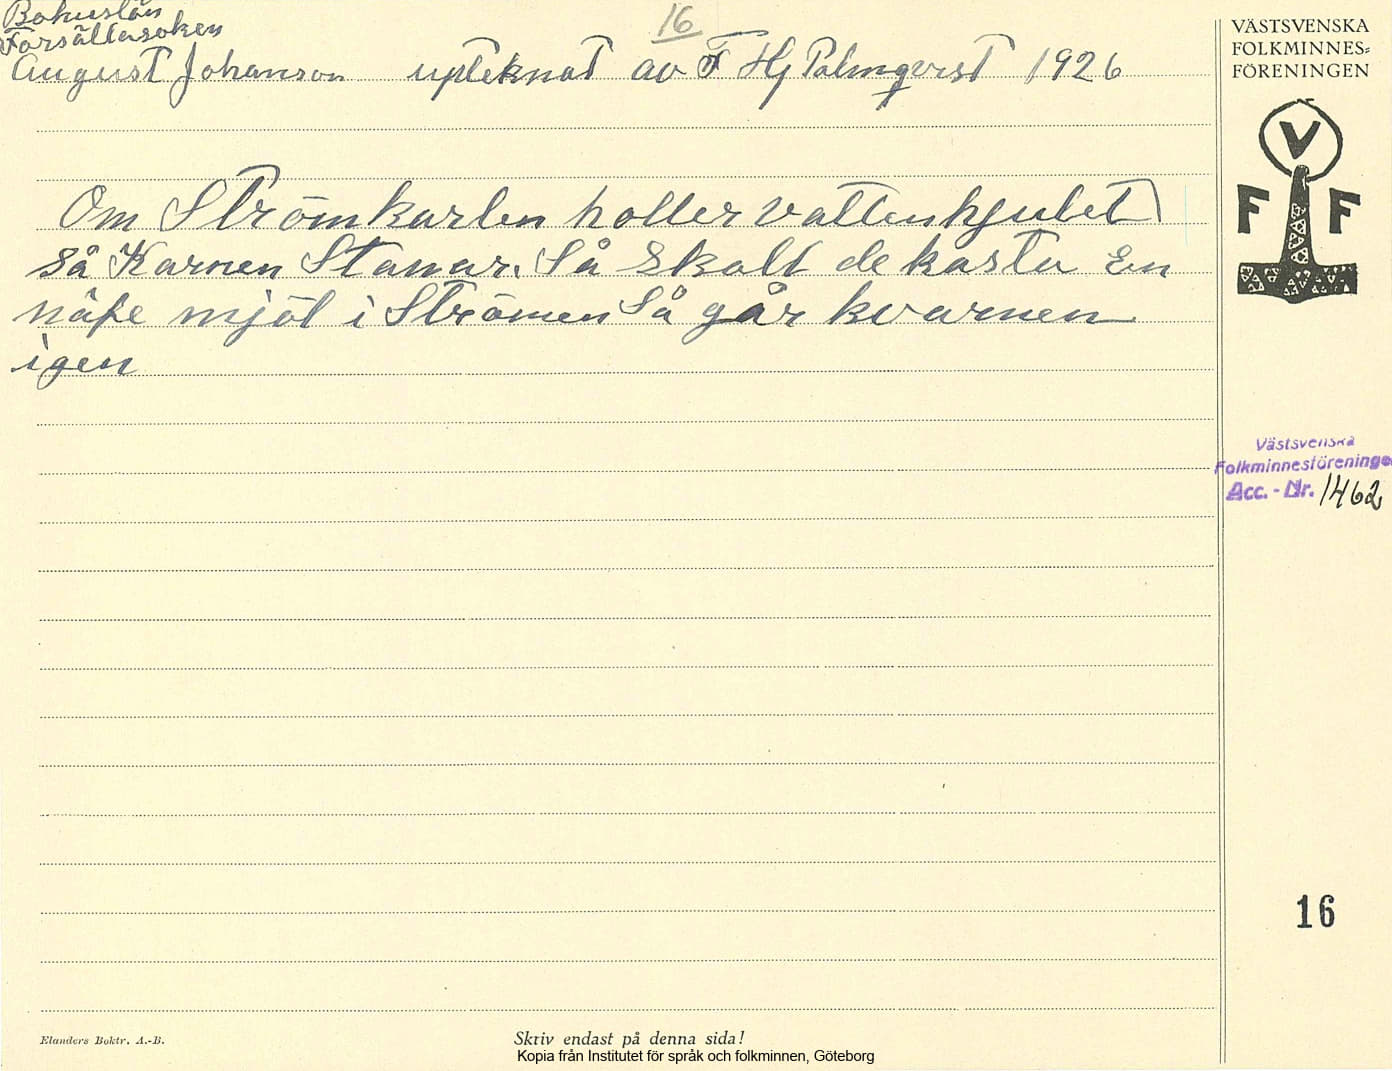 Bohuslän
Forsällasoken
16
August Johanson upteknat av F Hj Palmqvist 1926
Om Strömkarlen holler vattenhjulet
så Karnen Stanar. Så skall de kasta En
näfe mjöl i Strömen Så går kvarnen
igen
VÄSTSVENSKA
FOLKMINNES-
FÖRENINGEN
V
F F
Västsvenska
Folkminnesföreningen
Acc. - Nr. 1462
16
Elanders Boktr. A.-B.
Skriv endast på denna sida!
Kopia från Institutet för språk och folkminnen, Göteborg